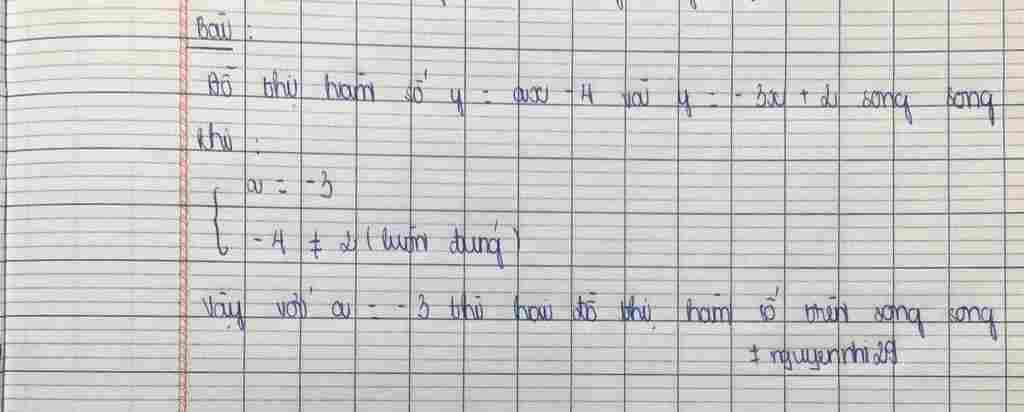 Bài :
Đồ thị hàm số y = ax - 4 và y = - 3x + 2 song song
thì :
{ a = -3
- 4 ≠ 2 (luôn đúng)
Vậy với a = -3 thì hai đồ thị hàm số trên song song
± nguyennhi29